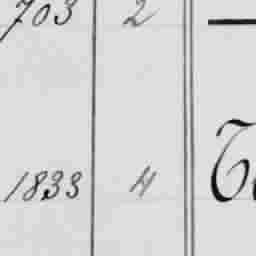 703 2
1833 4